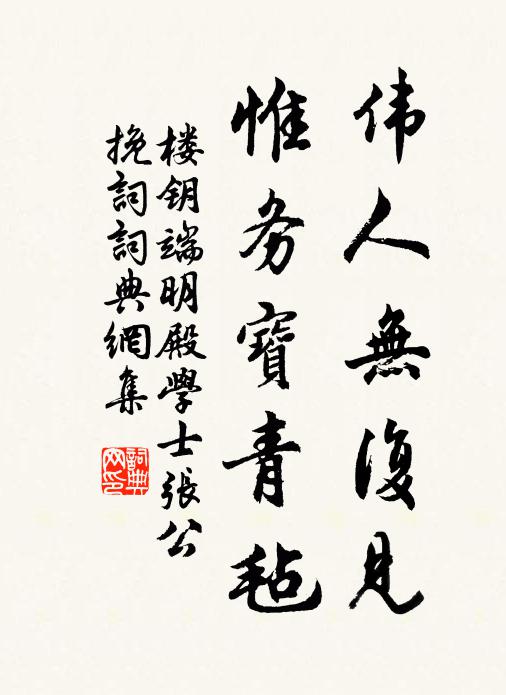 伟人無復見
惟务寶青毡
楼钥端明殿學士張公
挽詞詞典網集
詞典网印